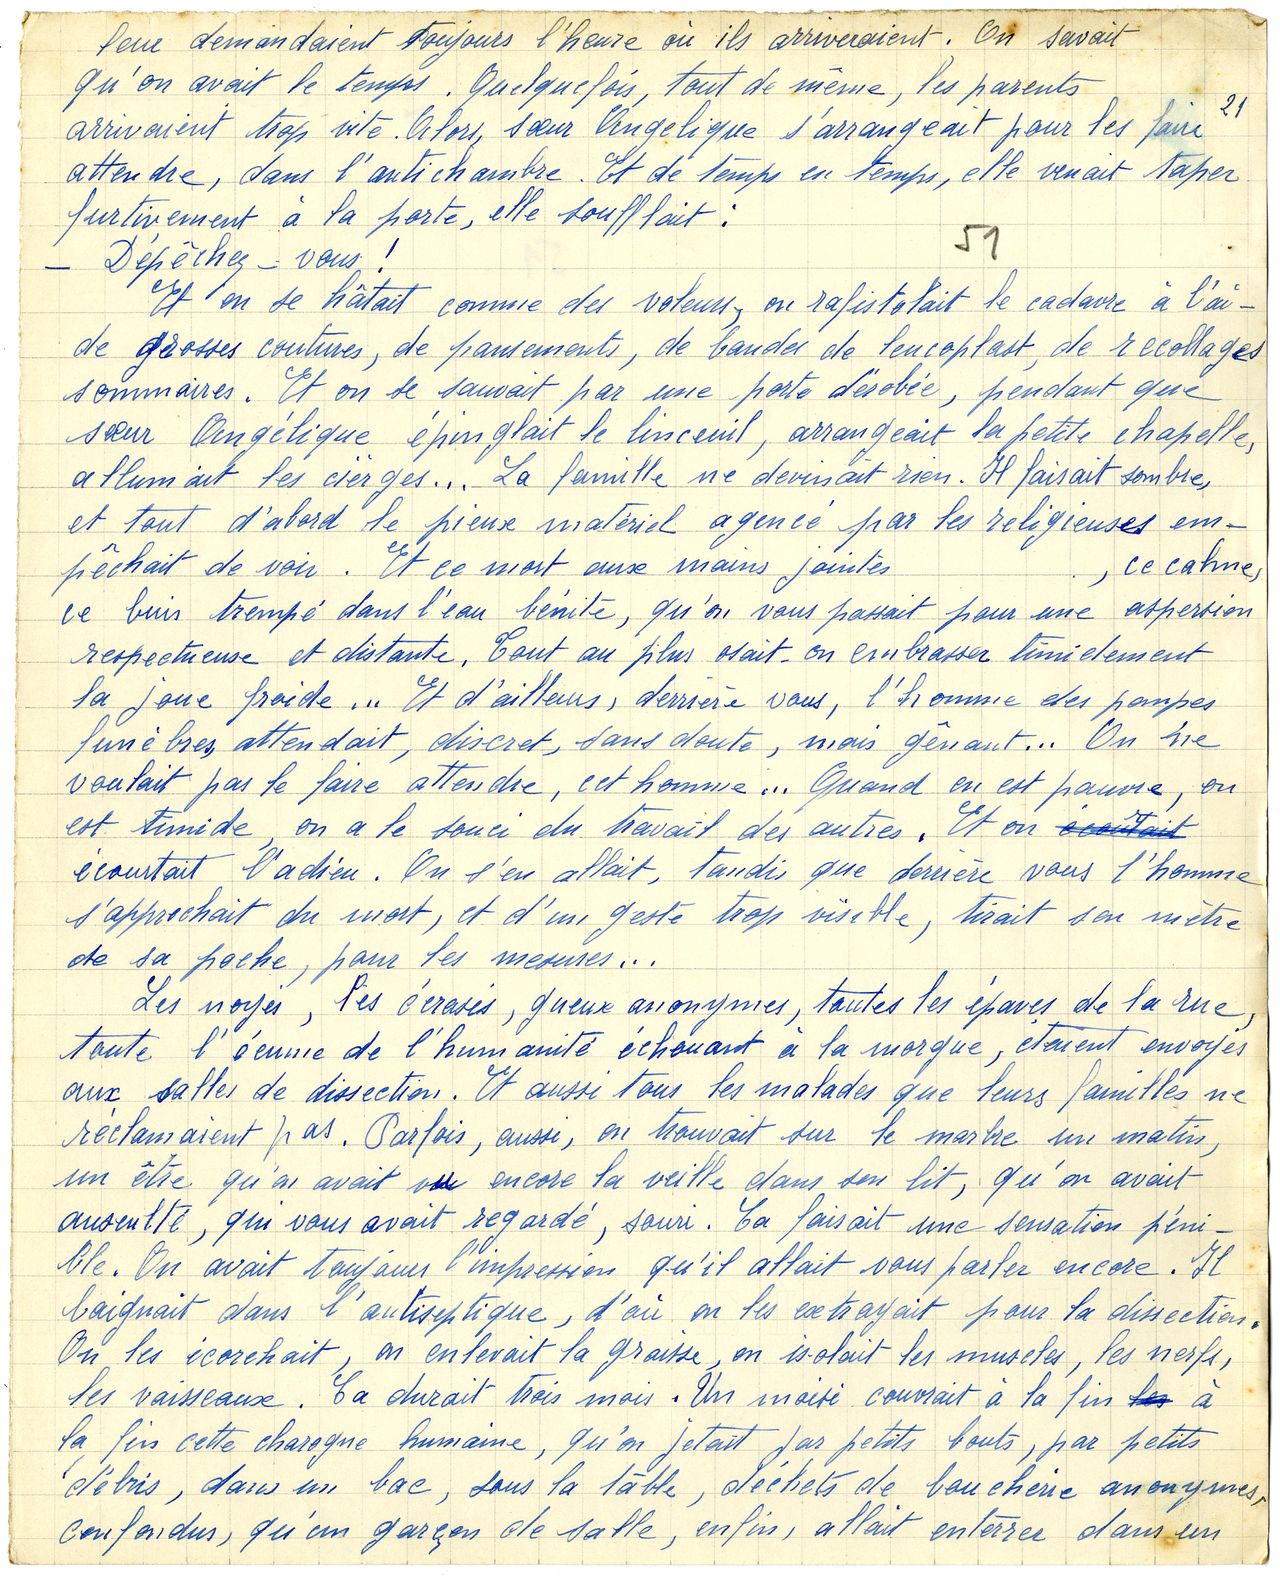 leur demandaient toujours l'heure où ils arriveraient. On savait
qu'on avait le temps. Quelquefois, tout de même, les parents
21
arrivaient trop vite. Alors, sœur Angélique s'arrangeait pour les faire
attendre, dans l'antichambre. Et de temps en temps, elle venait taper
furtivement à la porte, elle soufflait :
51
— Dépêchez-vous !
Et on se hâtait comme des voleurs, on rafistolait le cadavre à l'ai-
de grosses coutures, de pansements, de bandes de leucoplast, de recollages
sommaires. Et on se sauvait par une porte dérobée, pendant que
sœur Angélique épinglait le linceuil, arrangeait la petite chapelle,
allumait les cierges... La famille ne devinait rien. Il faisait sombre,
et tout d'abord le pieux matériel agencé par les religieuses em-
pêchait de voir. Et ce mort aux mains jointes , ce calme,
ce buis trempé dans l'eau bénite, qu'on vous passait pour une aspersion
respectueuse et distante. Tout au plus osait-on embrasser timidement
la joue froide... Et d'ailleurs, derrière vous, l'homme des pompes
funèbres attendait, discret, sans doute, mais gênant... On ne
voulait pas le faire attendre, cet homme... Quand on est pauvre, on
est timide, on a le souci du travail des autres. Et on écoutait
écourtait l'adieu. On s'en allait, tandis que derrière vous l'homme
s'approchait du mort, et d'un geste trop visible, tirait son mètre
de sa poche, pour les mesures...
Les noyés, les écrasés, gueux anonymes, toutes les épaves de la rue,
toute l'écume de l'humanité échouant à la morgue, étaient envoyés
aux salles de dissection. Et aussi tous les malades que leurs familles ne
réclamaient pas. Parfois, aussi, on trouvait sur le marbre un matin,
un être qu'on avait vu encore la veille dans son lit, qu'on avait
ausculté, qui vous avait regardé, souri. Ca faisait une sensation péni-
ble. On avait toujours l'impression qu'il allait vous parler encore. Il
baignait dans l'antiseptique, d'où on les extrayait pour la dissection.
On les écorchait, on enlevait la graisse, on isolait les muscles, les nerfs,
les vaisseaux. Ca durait trois mois. Un moisi couvrait à la fin les à
la fin cette charogne humaine, qu'on jetait par petits bouts, par petits
débris, dans un bac, sous la table, déchets de boucherie anonymes,
confondus, qu'un garçon de salle, enfin, allait enterrer dans un